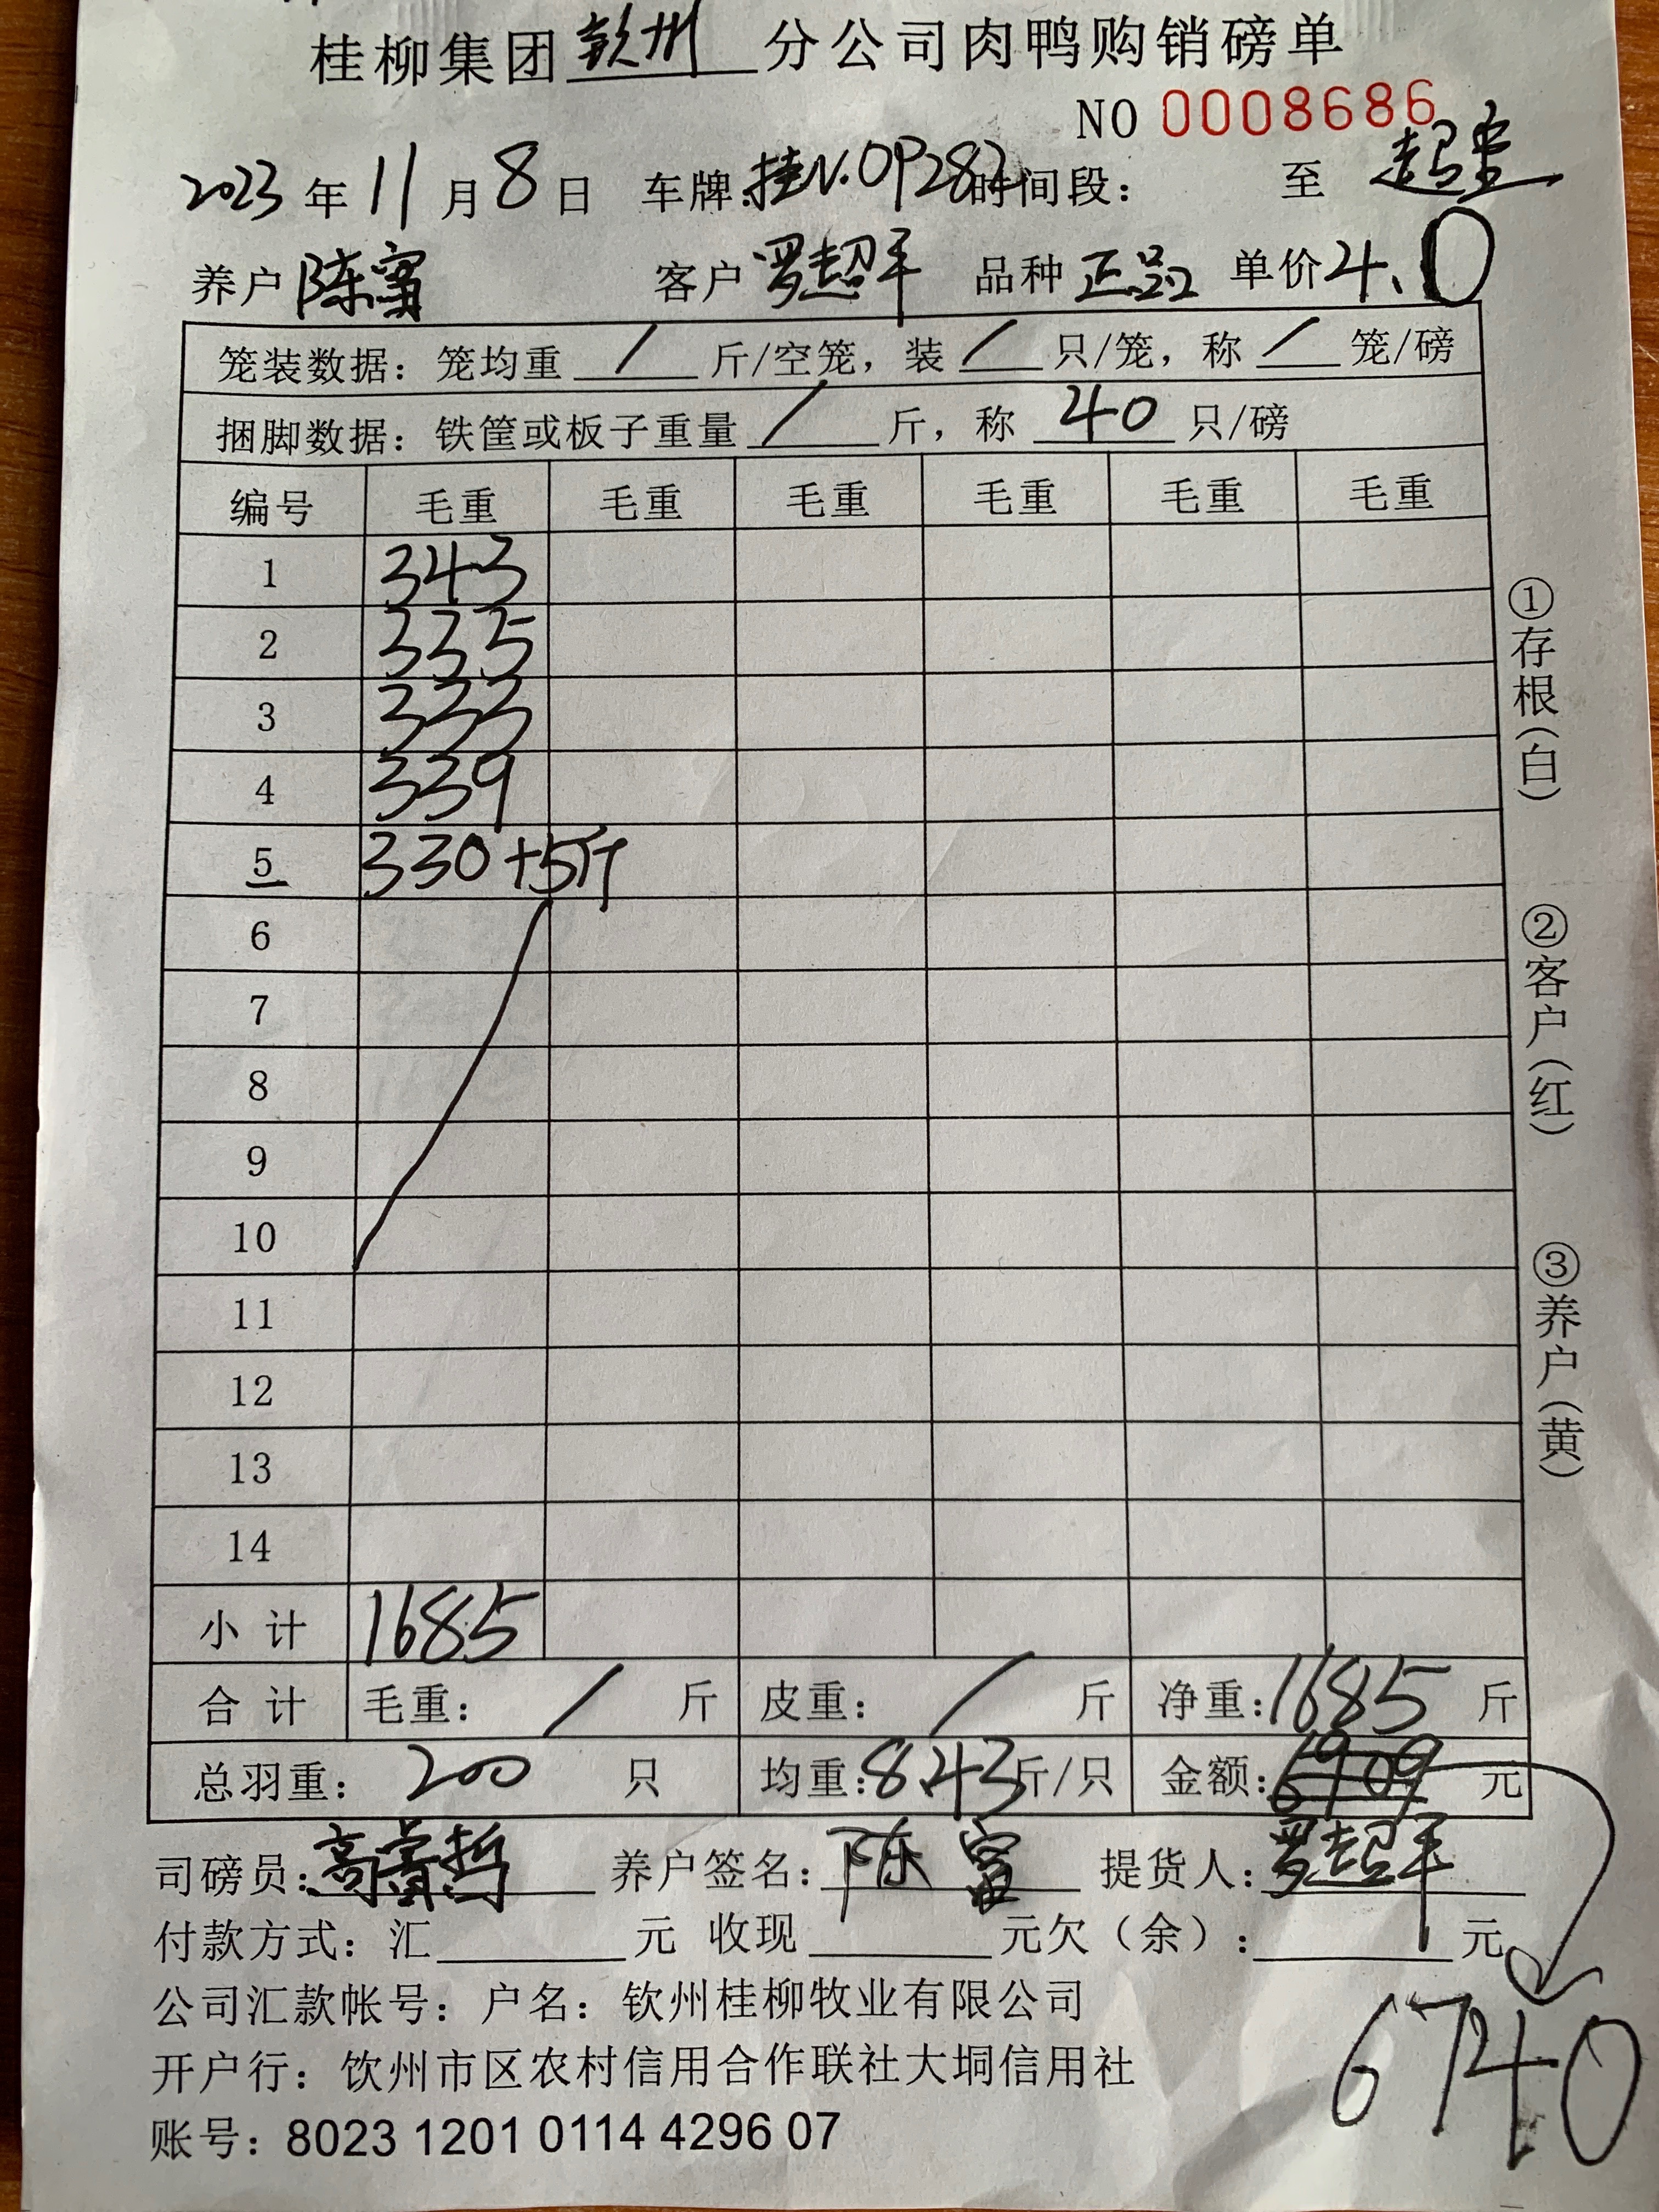 桂柳集团钦州分公司肉鸭购销磅单
NO 0008686
2023年11月8日 车牌:桂N.0P282 时间段: 至
养户 陈富 客户 罗超平 品种 正品 单价4.0
笼装数据：笼均重 / 斤/空笼，装 / 只/笼，称 / 笼/磅
捆脚数据：铁筐或板子重量 / 斤，称 40 只/磅
编号 毛重 毛重 毛重 毛重 毛重 毛重
1 343
2 335
3 333
4 339
5 330+5斤
6
7
8
9
10
11
12
13
14
小计 1685
合计 毛重： / 斤 皮重： / 斤 净重：1685 斤
总羽重： 200 只 均重：8.43斤/只 金额：6909 元
司磅员： 养户签名：陈富 提货人：罗超平
付款方式：汇 元 收现 元欠（余）： 元
6740
公司汇款帐号：户名：钦州桂柳牧业有限公司
开户行：饮州市区农村信用合作联社大垌信用社
账号：8023 1201 0114 4296 07
①存根(白)
②客户(红)
③养户(黄)